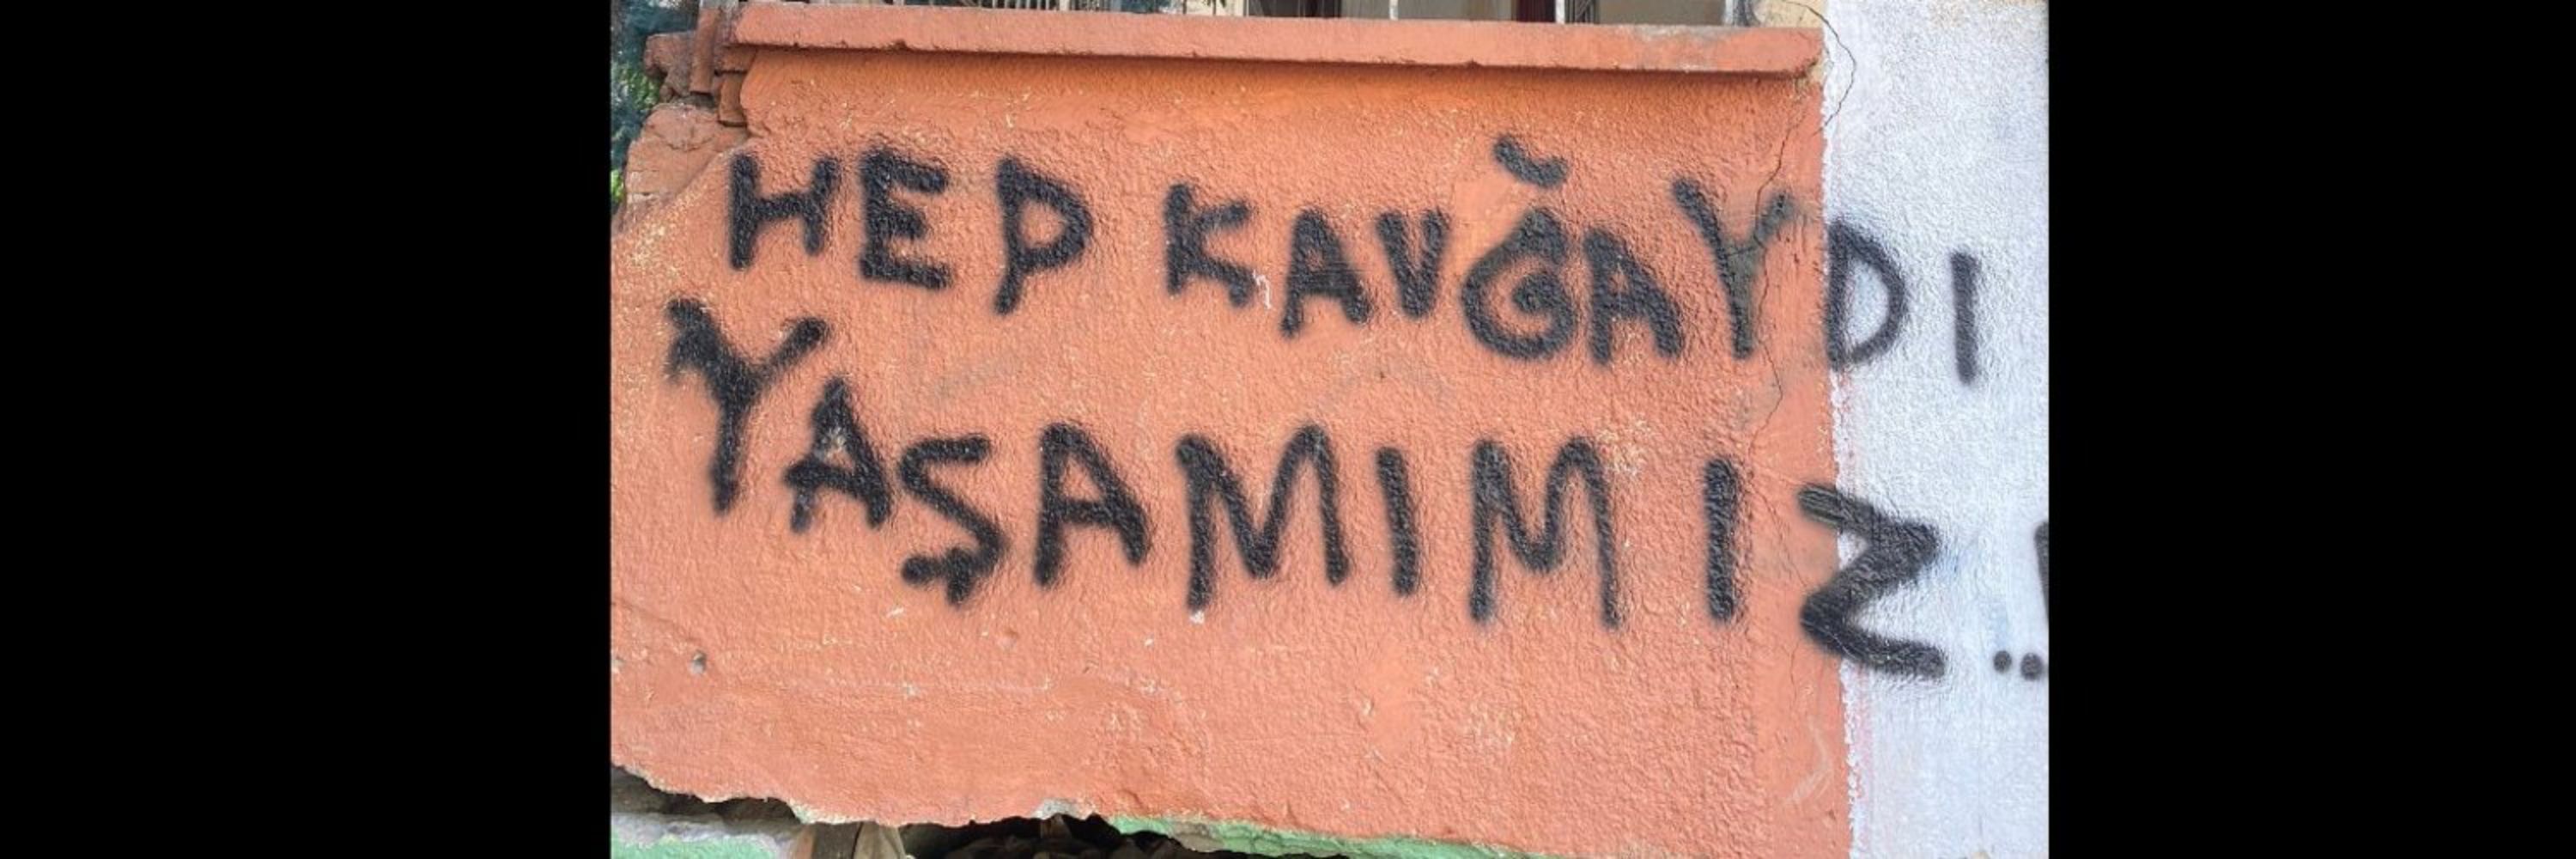 HEP KAVĞAYDI
YAŞAMIMIZ..